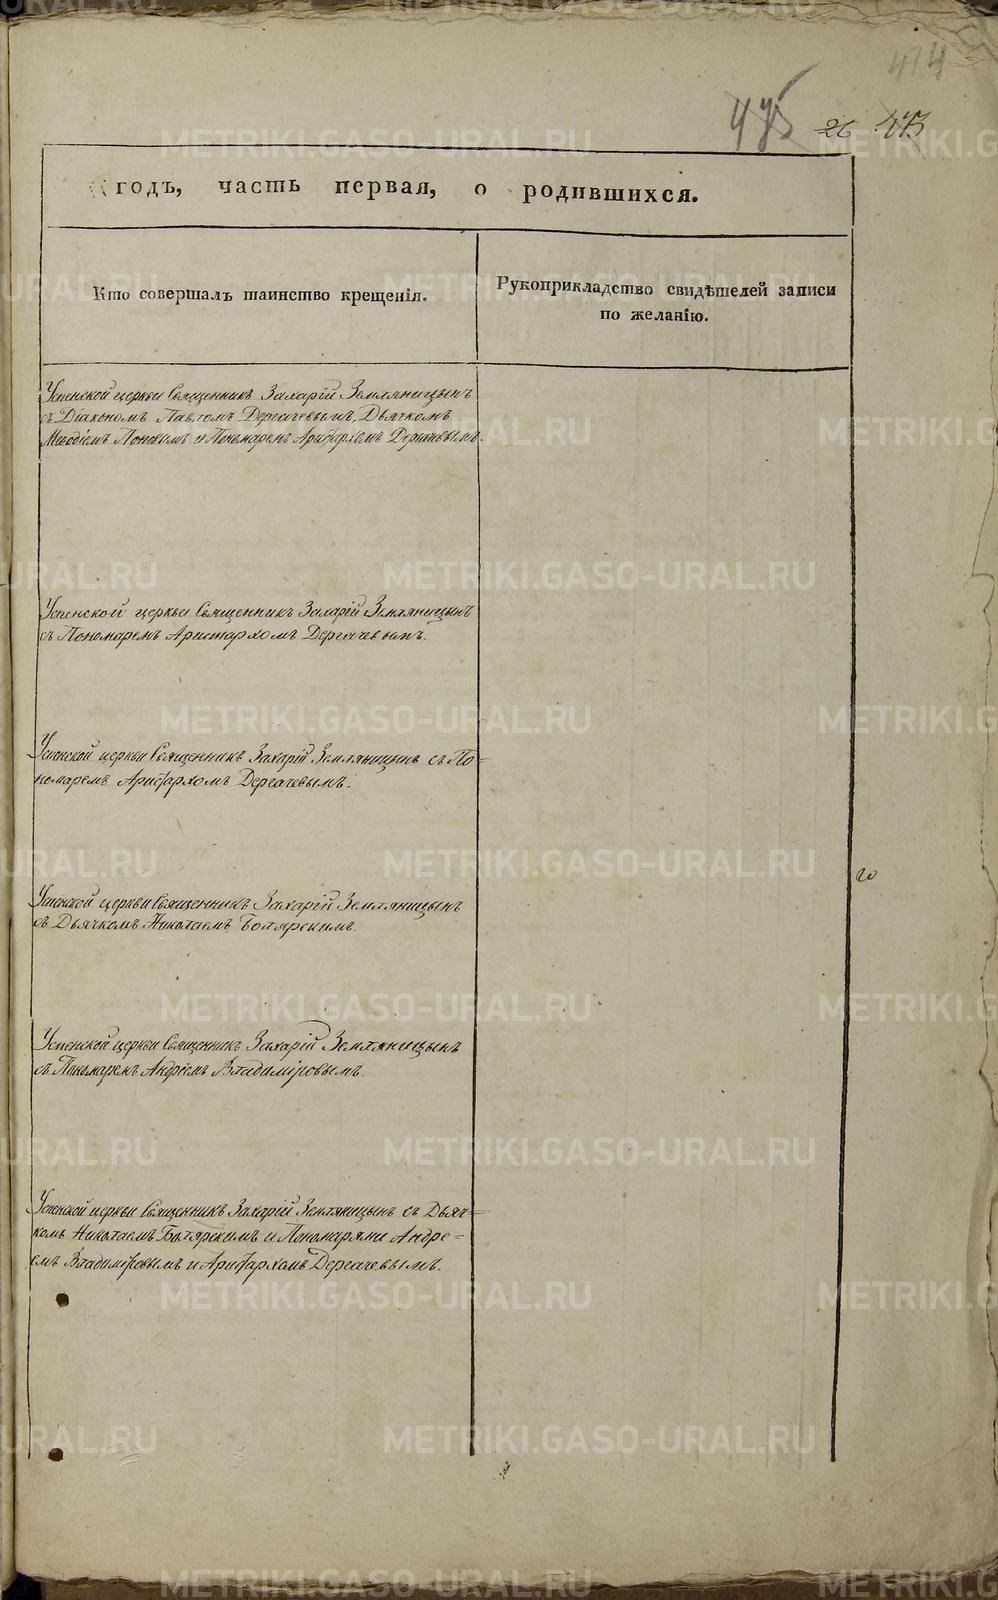 474
475 26 473
годъ, часть первая, о родившихся.
Кто совершалъ таинство крещенія.
Рукоприкладство свидѣтелей записи
по желанію.
Успенской церкви Священникъ Захарій Земляницынъ
съ Діакономъ Павломъ Дергачевымъ, Дьячкомъ
Меѳодіемъ Поповымъ и Пономаремъ Аристархомъ Дергачевымъ.
Успенской церкви Священникъ Захарій Земляницынъ
съ Пономаремъ Аристархомъ Дергачевымъ.
Успенской церкви Священникъ Захарій Земляницынъ съ По=
номаремъ Аристархомъ Дергачевымъ.
20
Успенской церкви Священникъ Захарій Земляницынъ
съ Дьячкомъ Николаемъ Боярскимъ.
Успенской церкви Священникъ Захарій Земляницынъ
съ Пономаремъ Андріемъ Владиміровымъ.
Успенской церкви Священникъ Захарій Земляницынъ съ Дьяч=
комъ Николаемъ Боярскимъ и Пономарями Андре=
емъ Владиміровымъ и Аристархомъ Дергачевымъ.
METRIKI.GASO-URAL.RU